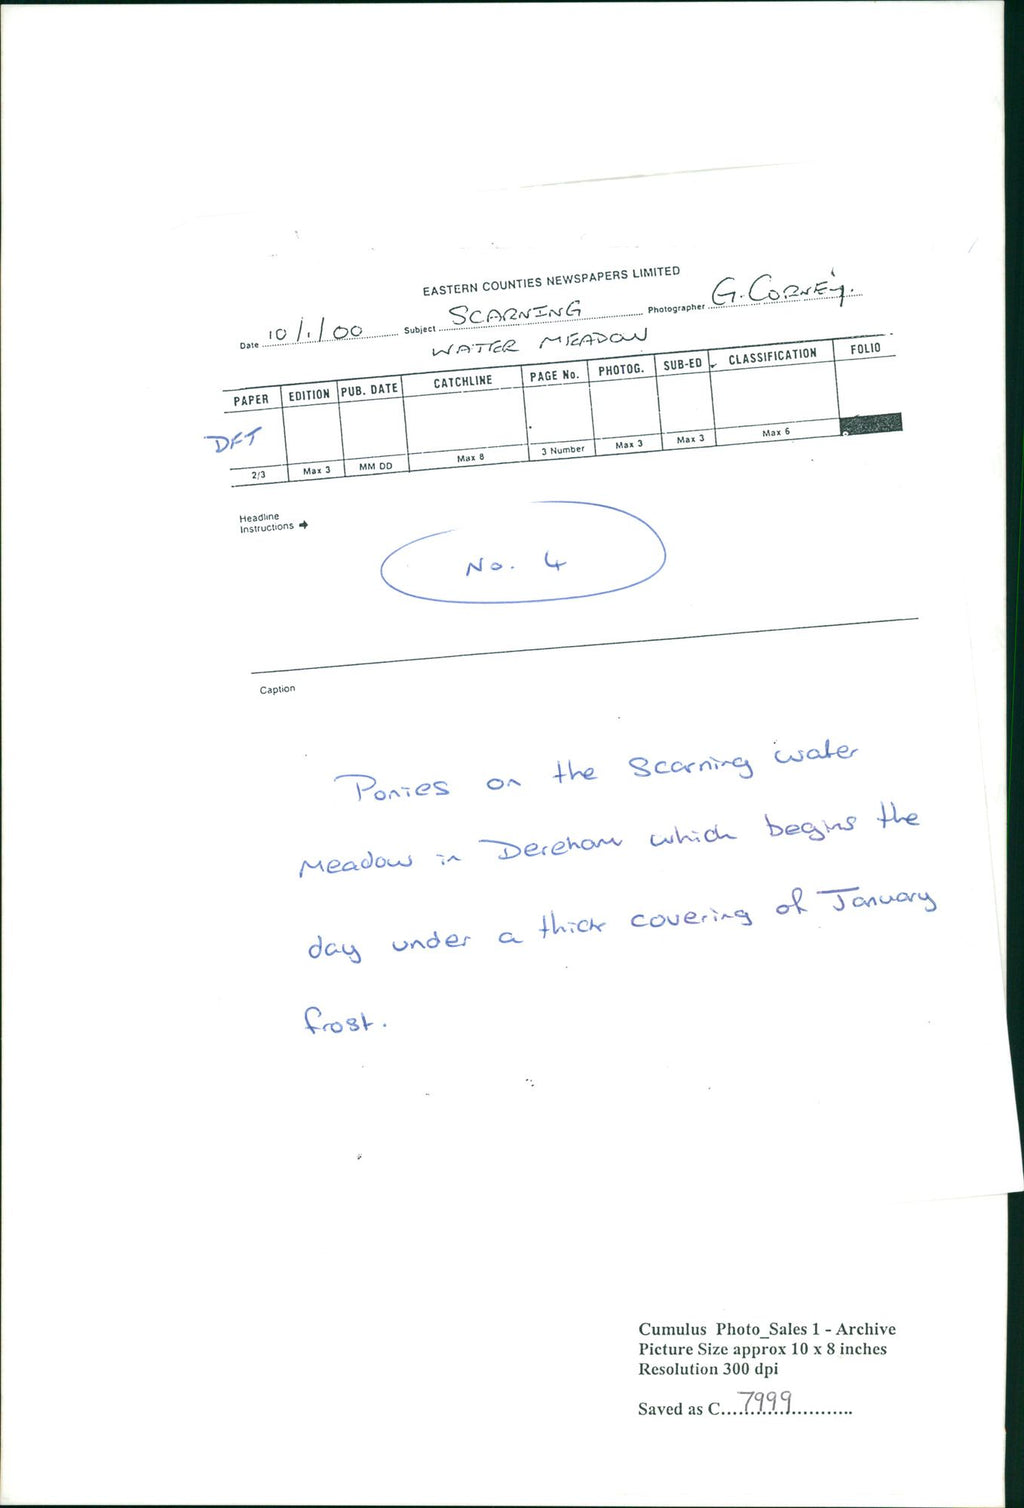 EASTERN COUNTIES NEWSPAPERS LIMITED
Date 10/1/00 Subject SCARNING Photographer G. CORNEY.
WATTER MEADOW
PAPER EDITION PUB. DATE CATCHLINE PAGE No. PHOTOG. SUB-ED CLASSIFICATION FOLIO
DFT
2/3 Max 3 MM DD Max 8 3 Number Max 3 Max 3 Max 6
Headline
Instructions →
No. 4
Caption
Ponies on the Scarning water
Meadow in Dereham which begins the
day under a thick covering of January
frost.
Cumulus Photo_Sales 1 - Archive
Picture Size approx 10 x 8 inches
Resolution 300 dpi
Saved as C....7999............